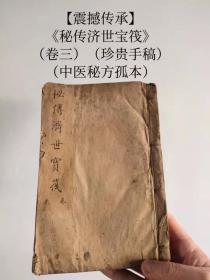 【震撼传承】
《秘传济世宝筏》
（卷三）（珍贵手稿）
（中医秘方孤本）
秘傳濟世寶筏